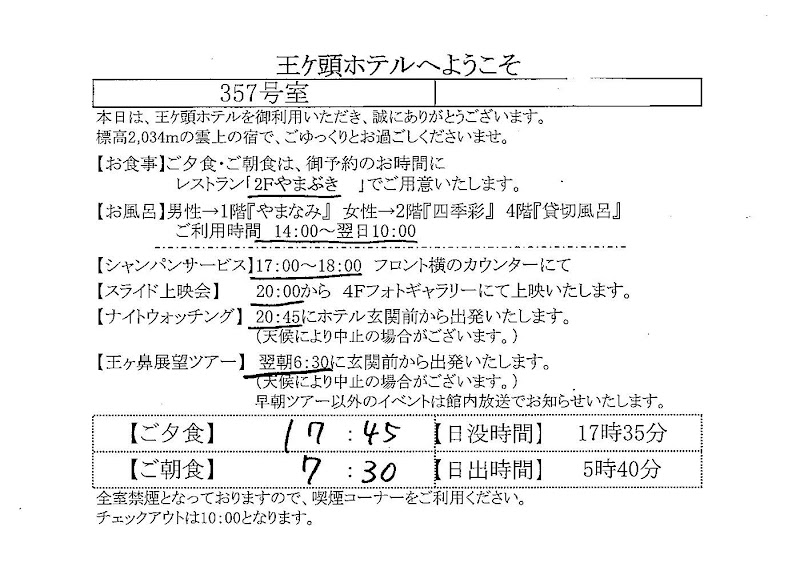 王ケ頭ホテルへようこそ
357号室
本日は、王ケ頭ホテルを御利用いただき、誠にありがとうございます。
標高2,034mの雲上の宿で、ごゆっくりとお過ごしくださいませ。
【お食事】ご夕食・ご朝食は、御予約のお時間に
レストラン「2Fやまぶき 」でご用意いたします。
【お風呂】男性→1階『やまなみ』 女性→2階『四季彩』 4階『貸切風呂』
ご利用時間 14:00～翌日10:00
【シャンパンサービス】17:00～18:00 フロント横のカウンターにて
【スライド上映会】 20:00から 4Fフォトギャラリーにて上映いたします。
【ナイトウォッチング】 20:45にホテル玄関前から出発いたします。
(天候により中止の場合がございます。)
【王ヶ鼻展望ツアー】 翌朝6:30に玄関前から出発いたします。
(天候により中止の場合がございます。)
早朝ツアー以外のイベントは館内放送でお知らせいたします。
【ご夕食】 17:45 【日没時間】 17時35分
【ご朝食】 7:30 【日出時間】 5時40分
全室禁煙となっておりますので、喫煙コーナーをご利用ください。
チェックアウトは10:00となります。